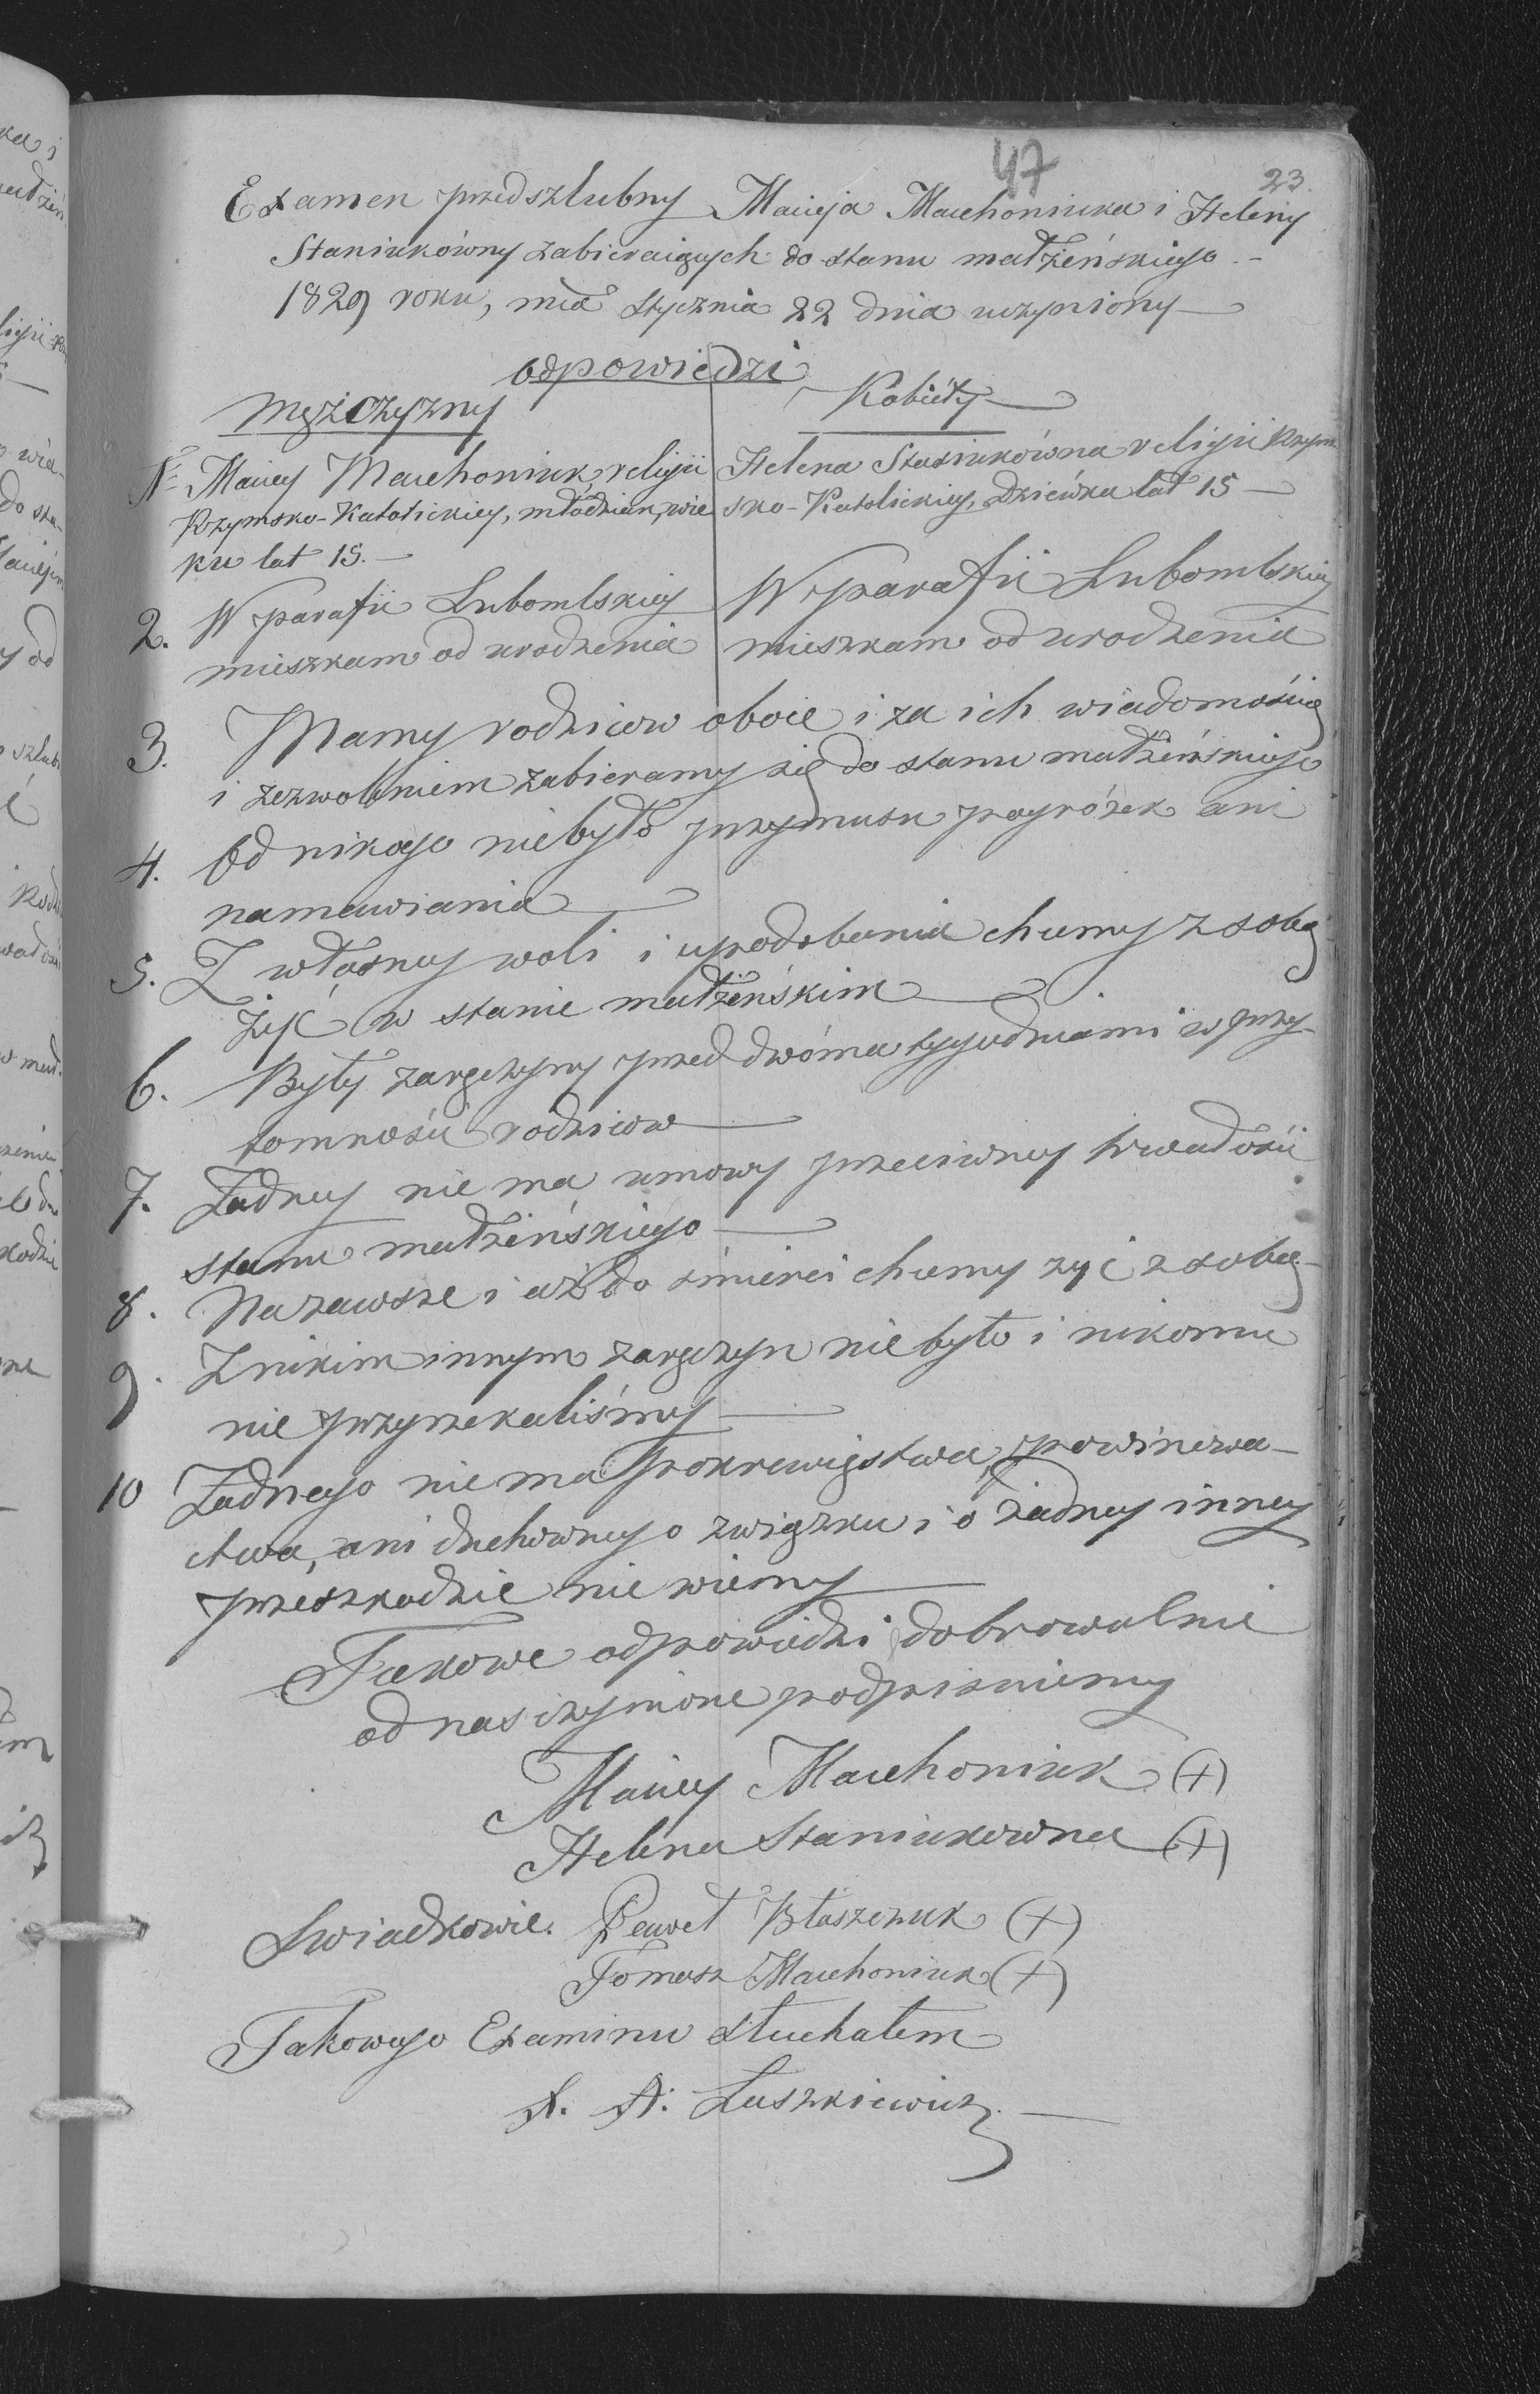 47
23.
Examen przedszlubny Macieja Machoniuka i Heleny
Staniukówny zabieraiących do stanu małżeńskiego -
1829 roku, mca Stycznia 22 dnia uczyniony
Odpowiedzi
Mężczyzny
Kobiéty
1. Maciey Machoniuk religii
Rzymsko-Katolickiey, młodzian, wie
ku lat 15. -
Helena Stasiukówna religii Rzym
sko-Katolickiey, Dziéwka lat 15 -
2. W parafii Lubomlskiey
mieszkam od urodzenia
W parafii Lubomlskiey
mieszkam od urodzenia
3. Mamy rodzicow oboie i za ich wiadomością
i zezwoleniem zabieramy się do stanu małżeńskiego
4. Od nikogo niebyło przymusu pogróżek ani
namawiania
5. Z własney woli i upodobania chcemy z sobą
żyć w stanie małżeńskim
6. Były zaręczyny przed dwóma tygodniami w przy-
tomności rodzicow
7. Żadney nie ma umowy przeciwney trwałości
stanu małżeńskiego
8. Na zawsze i aż do śmierci chcemy żyć z sobą -
9. Z nikim innym zaręczyn nie było i nikomu
nie przyrzekaliśmy
10 Żadnego nie ma pokrewięstwa, powinowa-
ctwa, ani duchownego związku i o żadney inney
przeszkodzie nie wiemy
Takowe odpowiedzi dobrowolnie
od nas czynione podpisuiemy
Maciey Machoniuk (+)
Helena Staniukowna (+)
Swiadkowie. Paweł Błaszczuk (+)
Tomasz Machoniuk (+)
Takowego Examinu słuchałem
X. A. Łuszkiewicz